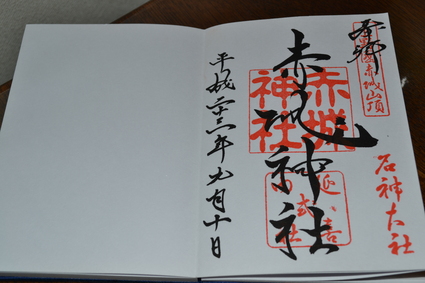 奉拝
上毛国赤城山頂
名神大社
赤城神社
赤城
神社
延喜
式内
社
平成二十三年九月十日